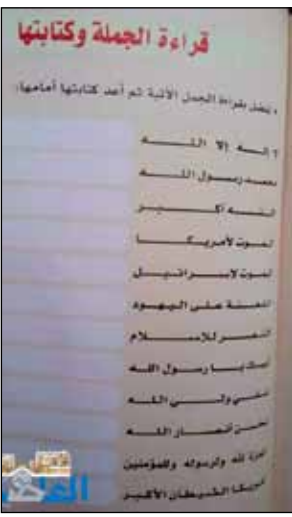 قراءة الجملة وكتابتها
تفضل بقراءة الجمل الآتية ثم أعد كتابتها أمامها:
لا إلــه إلا اللـــه
محمد رســول اللـه
اللــه أكــبــر
الموت لأمريكــا
الموت لإسـرائيـل
اللعنـة علـى اليـهـود
النصـر للإســلام
لبيك يــا رســول الله
علـي ولــي اللـه
نحـن أنصــار اللـه
العزة لله ولرسوله وللمؤمنين
أمريكا الشيـطان الأكبر